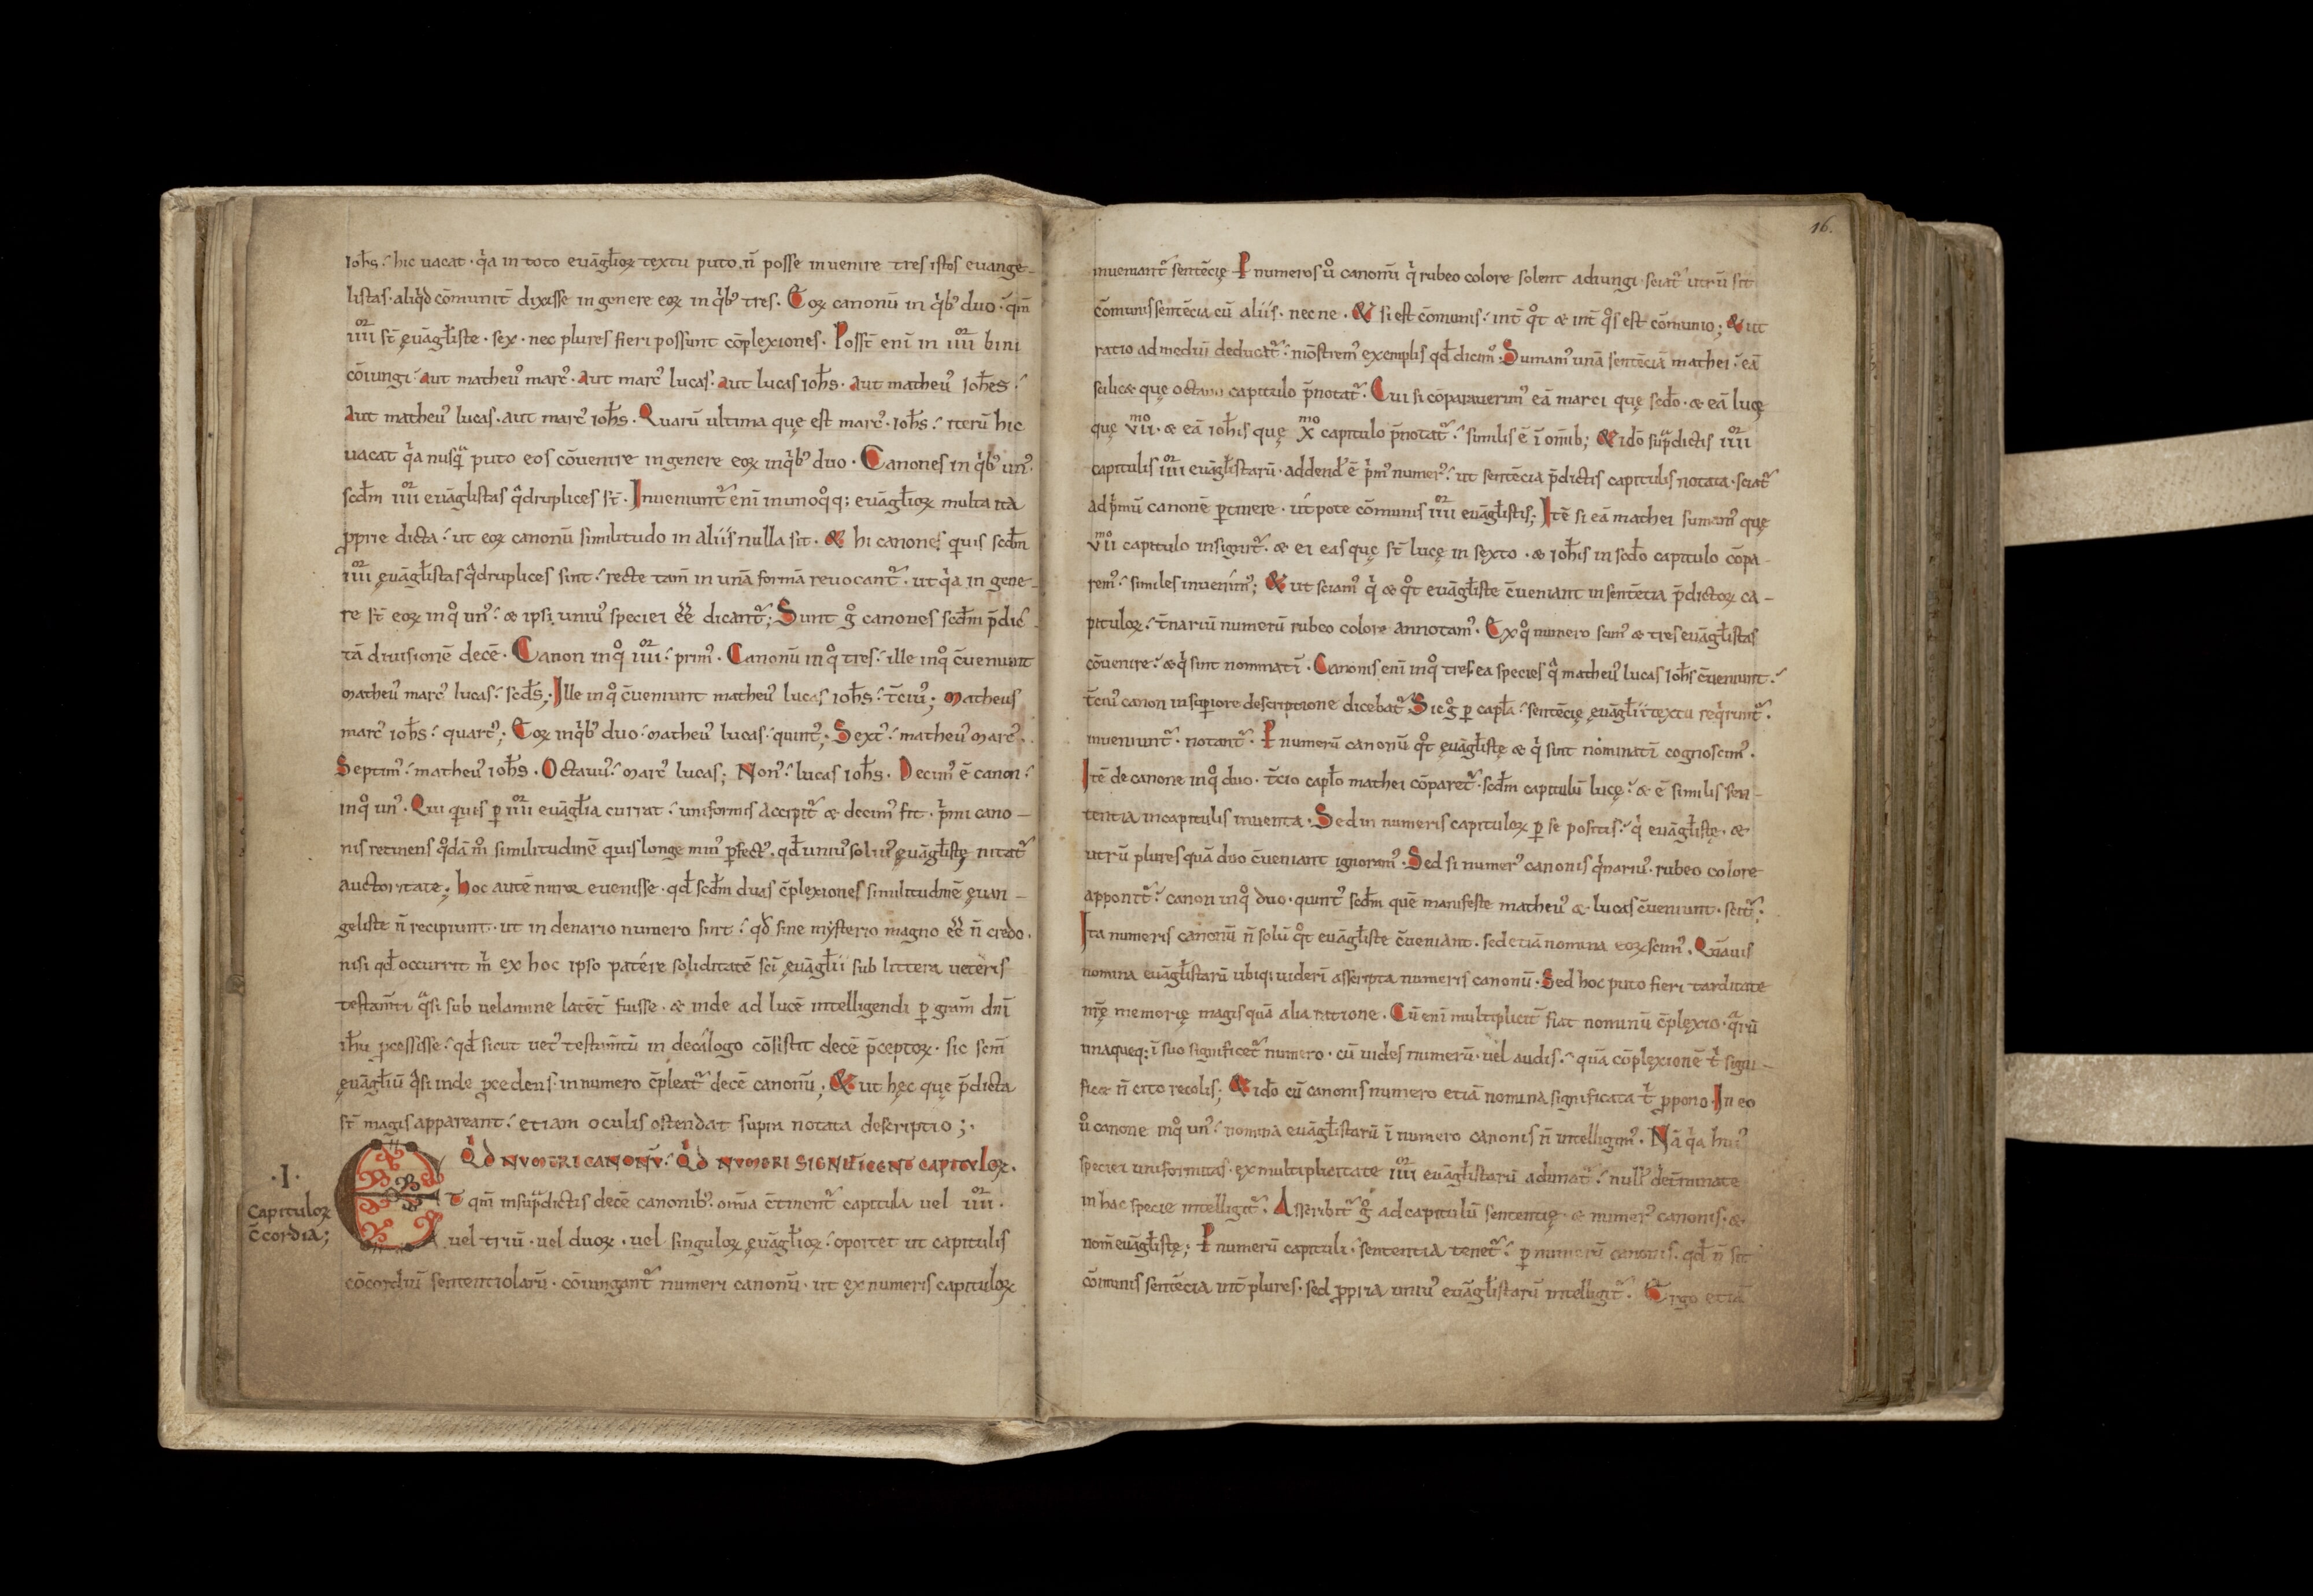 ioh̅s. hic uacat. qͥa in toto euāgl̅ioꝝ textu puto n̅ posse inuenire tres istos euange-
listas. aliqͥd cōmunit̅ dixisse in genere eoꝝ in qͥbꝰ tres. Eoꝝ canonū in qͥbꝰ duo. qm̅
iiii st̅ ęuāgl̅iste. sex. nec plures fieri possunt cōplexiones. Poss̅t eni̅ in iiii bini
cōiungi. aut matheuꝰ marcꝰ. aut marcꝰ lucas. aut lucas ioh̅s. aut matheuꝰ ioh̅es.
aut matheuꝰ lucas. aut marcꝰ ioh̅s. Quarū ultima que est marcꝰ. ioh̅s. iterū hic
uacat qͥa nusqᷓ puto eos cōuenire in genere eoꝝ in qͥbꝰ duo. Canones in qͥbꝰ unꝰ.
scd̅m iiii euāgl̅istas qᷓdruplices st̅. Inueniunt᷑ eni̅ in unoqͦq; euāgl̅ioꝝ multa ita
ꝓprie dicta. ut eoꝝ canonū similitudo in aliis nulla sit. & hi canones quis scd̅m
iiii ęuāgl̅istas qᷓdruplices sint. recte tam̅ in unā formā reuocant᷑. ut qͥa in gene-
re st̅ eoꝝ in qͦ unꝰ. & ipsi uniuꝰ speciei ee̅ dicant᷑; Sunt gͦ canones scd̅m p̅dic-
tā diuisionē decē. Canon in qͦ iiii. primꝰ. Canonū in qͦ tres. ille in qͦ c̅ueniunt
matheuꝰ marcꝰ lucas. scd̅s. Ille in qͦ c̅ueniunt matheuꝰ lucas ioh̅s. t̅ciuꝰ; Matheus
marcꝰ ioh̅s. quartꝰ; Eoꝝ in qͥbꝰ duo. Matheuꝰ lucas. quintꝰ; Sextꝰ. matheuꝰ Marcꝰ.
Septimꝰ. matheuꝰ ioh̅s. Octauꝰ. Marcꝰ lucas; Nonꝰ. lucas ioh̅s. Decimꝰ ē canon.
in qͦ unꝰ. Qui quis ꝑ iiii euāgl̅ia currat. uniformis accipit᷑ & decimꝰ fit. pͥmi cano-
nis retinens qͦdā mͦ similitudinē quis longe minꝰ ꝑfectꝰ. qd̅ uniuꝰ soliuꝰ ęuāgl̅istę nitat᷑
auctoritate; Hoc autē euenisse. qd̅ scd̅m duas c̅plexiones similitudinē ęuan-
geliste n̅ recipiunt. ut in denario numero sint. qd̅ sine mysterio magno ee̅ n̅ credo.
nisi qd̅ occurrit mͥ ex hoc ipso patére soliditatē sci̅ ęuāgl̅ii sub littera ueteris
testam̅ti qᷓsi sub uelamine latēt̅ fuisse. & inde ad lucē intelligendi ꝑ gram̅ dn̅i
ih̅u ꝓcessisse. qd̅ sicut uetꝰ testam̅tū in decálogo cōsistit decē p̅ceptoꝝ. sic scm̅
ęuāgl̅iū qᷓsi inde ꝓcedens. in numero c̅pleat᷑ decē canonū; & ut hęc que p̅dicta
st̅ magis appareant. etiam oculis ostendat supra notata descriptio;.
QD NUMERI CANONŪ. QD NUMERI SIGNIFICENT CAPITULOꝝ.
.I.
Capituloꝝ
c̅cordia;
Et qm̅ in sup̅dictis decē canonibꝰ. om̅ia c̅tinent᷑ capitula uel iiii.
uel triū. uel duoꝝ. uel singuloꝝ ęuāgl̅ioꝝ. oportet ut capitulis
cōcordiū sententiolarū. cōiungant᷑ numeri canonū. ut ex numeris capituloꝝ
16.
inueniant᷑ sentēcię P numeros uͦ canonū qͥ rubeo colore solent adiungi. sciat᷑ utrū sit
cōmunis sentēcia cū aliis. nec ne. & si est cōmunis. int̅ qͦt & int̅ qͦs est cōmunio; & ut
ratio ad mediū deducat᷑. mōstremꝰ exemplis qd̅ dicimꝰ. Sumamꝰ unā sentēciā mathei. eā
scilic& que octauo capitulo p̅notat᷑. Cui si cōparauerimꝰ eā marci quę scd̅o. & eā lucę
quę vii.mo & eā ioh̅is quę x mo capitulo p̅notat᷑. similis ē i̅ omib;; & idō sup̅dictis iiii
capitulis iiii euāgl̅istarū. addendꝰ ē pͥmꝰ numerꝰ. ut sentēcia p̅dictis capitulis notata. sciat᷑
ad pͥmū canonē ꝑtinere. ut pote cōmunis iiii euāgl̅istis; Itē si eā mathei sumamꝰ quę
vii mo capitulo insignit᷑. & ei eas quę st̅ lucę in sexto. & ioh̅is in scd̅o capitulo cōpa-
remꝰ. similes inuenimꝰ; & ut sciamꝰ qͥ & qͦt euāgl̅iste c̅ueniant in sentētia p̅dictoꝝ ca-
pituloꝝ. t̅nariū numerū rubeo colore annotamꝰ. Ex qͦ numero scimꝰ & tres euāgl̅istas
cōuenire. & qͥ sint nominati̅. Canonis eni̅ in qͦ tres ea species qᷓ matheuꝰ lucas ioh̅s c̅ueniunt.
t̅ciuꝰ canon in suꝑiore descriptione dicebat᷑ Sic gͦ ꝑ capl̅a. sentēcię ęuāgl̅ii textu reqͥrunt᷑.
inueniunt᷑. notant᷑. P numerū canonū qͦt ęuāgl̅istę & qͥ sint nominati̅ cognoscimꝰ.
Itē de canone in qͦ duo. t̅cio capl̅o mathei cōparet᷑. scd̅m capitulū lucę. & ē similis sen-
tentia in capitulis inuenta. Sed in numeris capituloꝝ ꝑ se positis. qͥ euāgl̅istę. &
utrū plures quā duo c̅ueniant ignoramꝰ. Sed si numerꝰ canonis qͥnariuꝰ. rubeo colore
apponit᷑. canon in qͦ duo. quintꝰ scd̅m quē manifeste matheuꝰ & lucas c̅ueniunt. scit᷑.
Ita numeris canonū n̅ solū qͦt euāgl̅iste c̅ueniant. sed etiā nomina eoꝝ scimꝰ. Quāuis
nomina euāgl̅istarū ubiqͥ uideri̅ asscripta numeris canonū. Sed hoc puto fieri tarditate
nr̅ę memorię magis quā alia ratione. Cū eni̅ multiplicit̅ fiat nominū c̅plexio. qᷓrū
unaqueq; i̅ suo significet᷑ numero. cū uides numerū. uel audis. quā cōplexionē tͥ signi-
fic& n̅ cito recolis; & idō cū canonis numero etiā nomina significata tͥ ꝓpono. In eo
uͦ canone in qͦ unꝰ. nomina euāgl̅istarū i̅ numero canonis n̅ intelligimꝰ. Nā qͥa huiꝰ
speciei uniformitas. ex multiplicitate iiii euāgl̅istarū adunat᷑. nullꝰ det̅minate
in hac specie intelligit᷑. Asscribit᷑ gͦ ad capitulū sententię. & numerꝰ canonis. &
nom̅ euāgl̅istę; P numerū capituli. sententia tenet᷑. ꝑ numerū canonis. qd̅ n̅ sit
cōmunis sentēcia int̅ plures. sed ꝓpria uniuꝰ euāgl̅istarū intelligit᷑. Ergo etiā